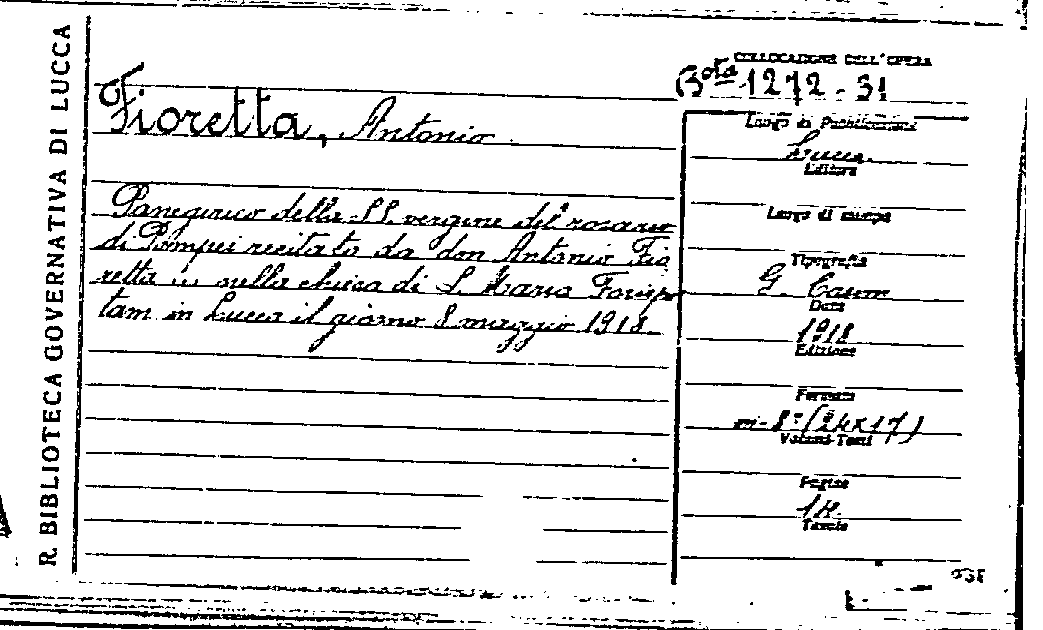 R. BIBLIOTECA GOVERNATIVA DI LUCCA
COLLOCAZIONE DELL'OPERA
Bᵒᵗᵃ 1272 - 31
Fioretta, Antonio
Panegirico della SS. vergine del rosario
di Pompei recitato da don Antonio Fio
retta ... nella chiesa di S. Maria Forispor
tam in Lucca il giorno 8 maggio 1918
Luogo di Pubblicazione
Lucca
Editore
Luogo di stampa
Tipografia
G.
Data
1918
Edizione
Formato
in-8° (24x17)
Volumi-Tomi
Pagine
14.
Tavole